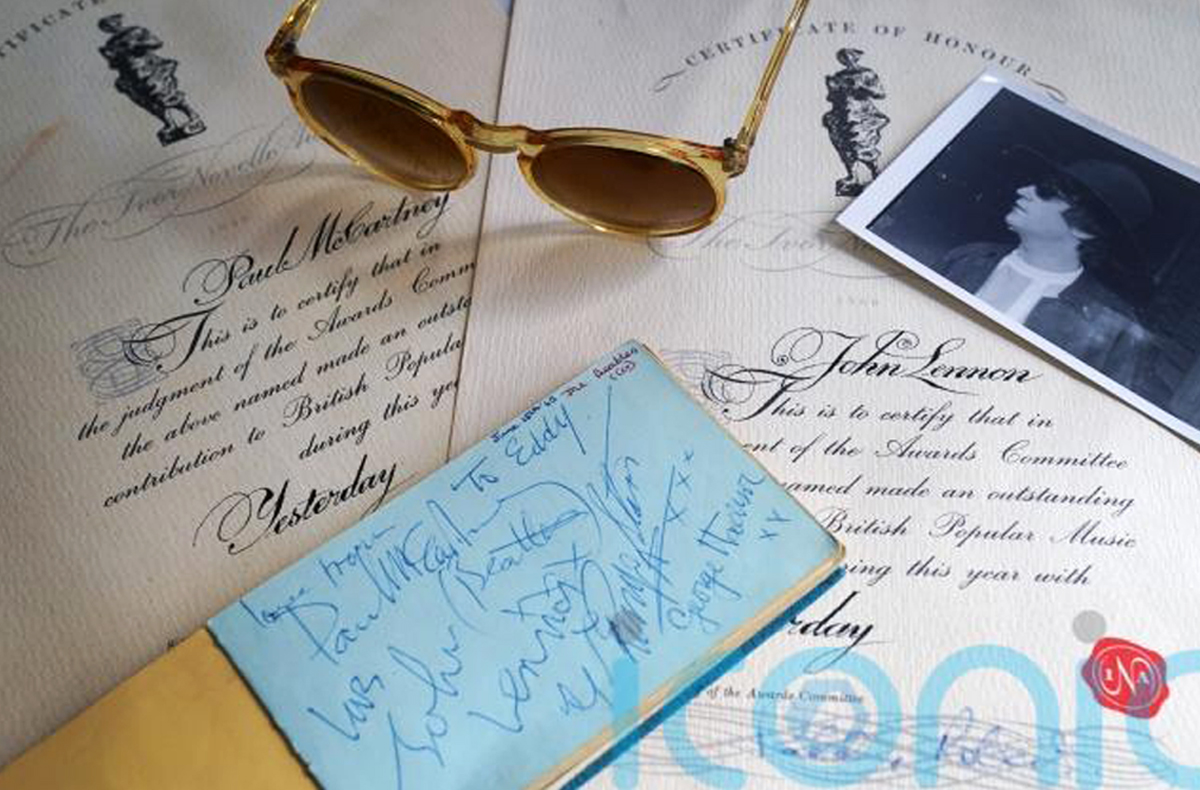 CERTIFICATE
The Ivor Novello
Paul McCartney
This is to certify that in
the judgment of the Awards Comm
the above named made an outsta
contribution to British Popula
during this ye
Yesterday
CERTIFICATE OF HONOUR
The Ivor
John Lennon
This is to certify that in
ent of the Awards Committee
named made an outstanding
British Popular Music
ring this year with
rday
of the Awards Committee
INA
To Eddy
love from
Paul McCartney
(Beatles)
luv
John
Lennon
xxx
George Harrison
xx
iconic